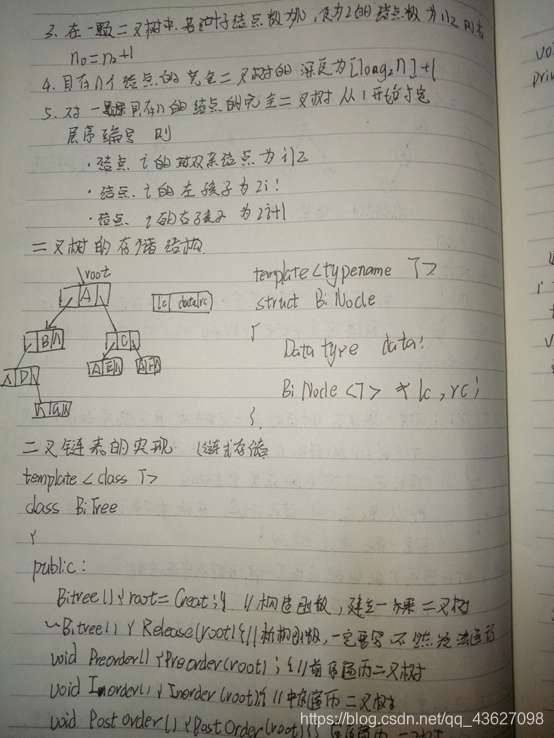 3. 在一颗二叉树中,若叶子结点数为n0,度为2的结点数为n2 则有
n0=n2+1
4. 具有n个结点的完全二叉树的深度为[log2n]+1
5. 对一颗具有n的结点的完全二叉树 从1开始
层序编号 则
· 结点 i 的双亲结点为 i/2
· 结点 i 的左孩子为 2i
· 结点 i 的右孩子 为 2i+1
二叉树的存储结构
root
A
lc data rc
B ∧
C
∧ D
∧ E ∧
∧ F ∧
∧ G ∧
template<typename T>
struct BiNode
{
Datatype data;
BiNode<T> *lc,rc;
};
二叉链表的实现 (链式存储
template<class T>
class BiTree
{
public:
Bitree(){root=Creat;} //构造函数,建立一颗二叉树
~Bitree(){Release(root)}//析构函数,一定要写 不然
void Preorder(){Preorder(root);}//前序遍历二叉树
void Inorder(){Inorder(root)}//中序遍历二叉树
void Postorder(){PostOrder(root)}
https://blog.csdn.net/qq_43627098